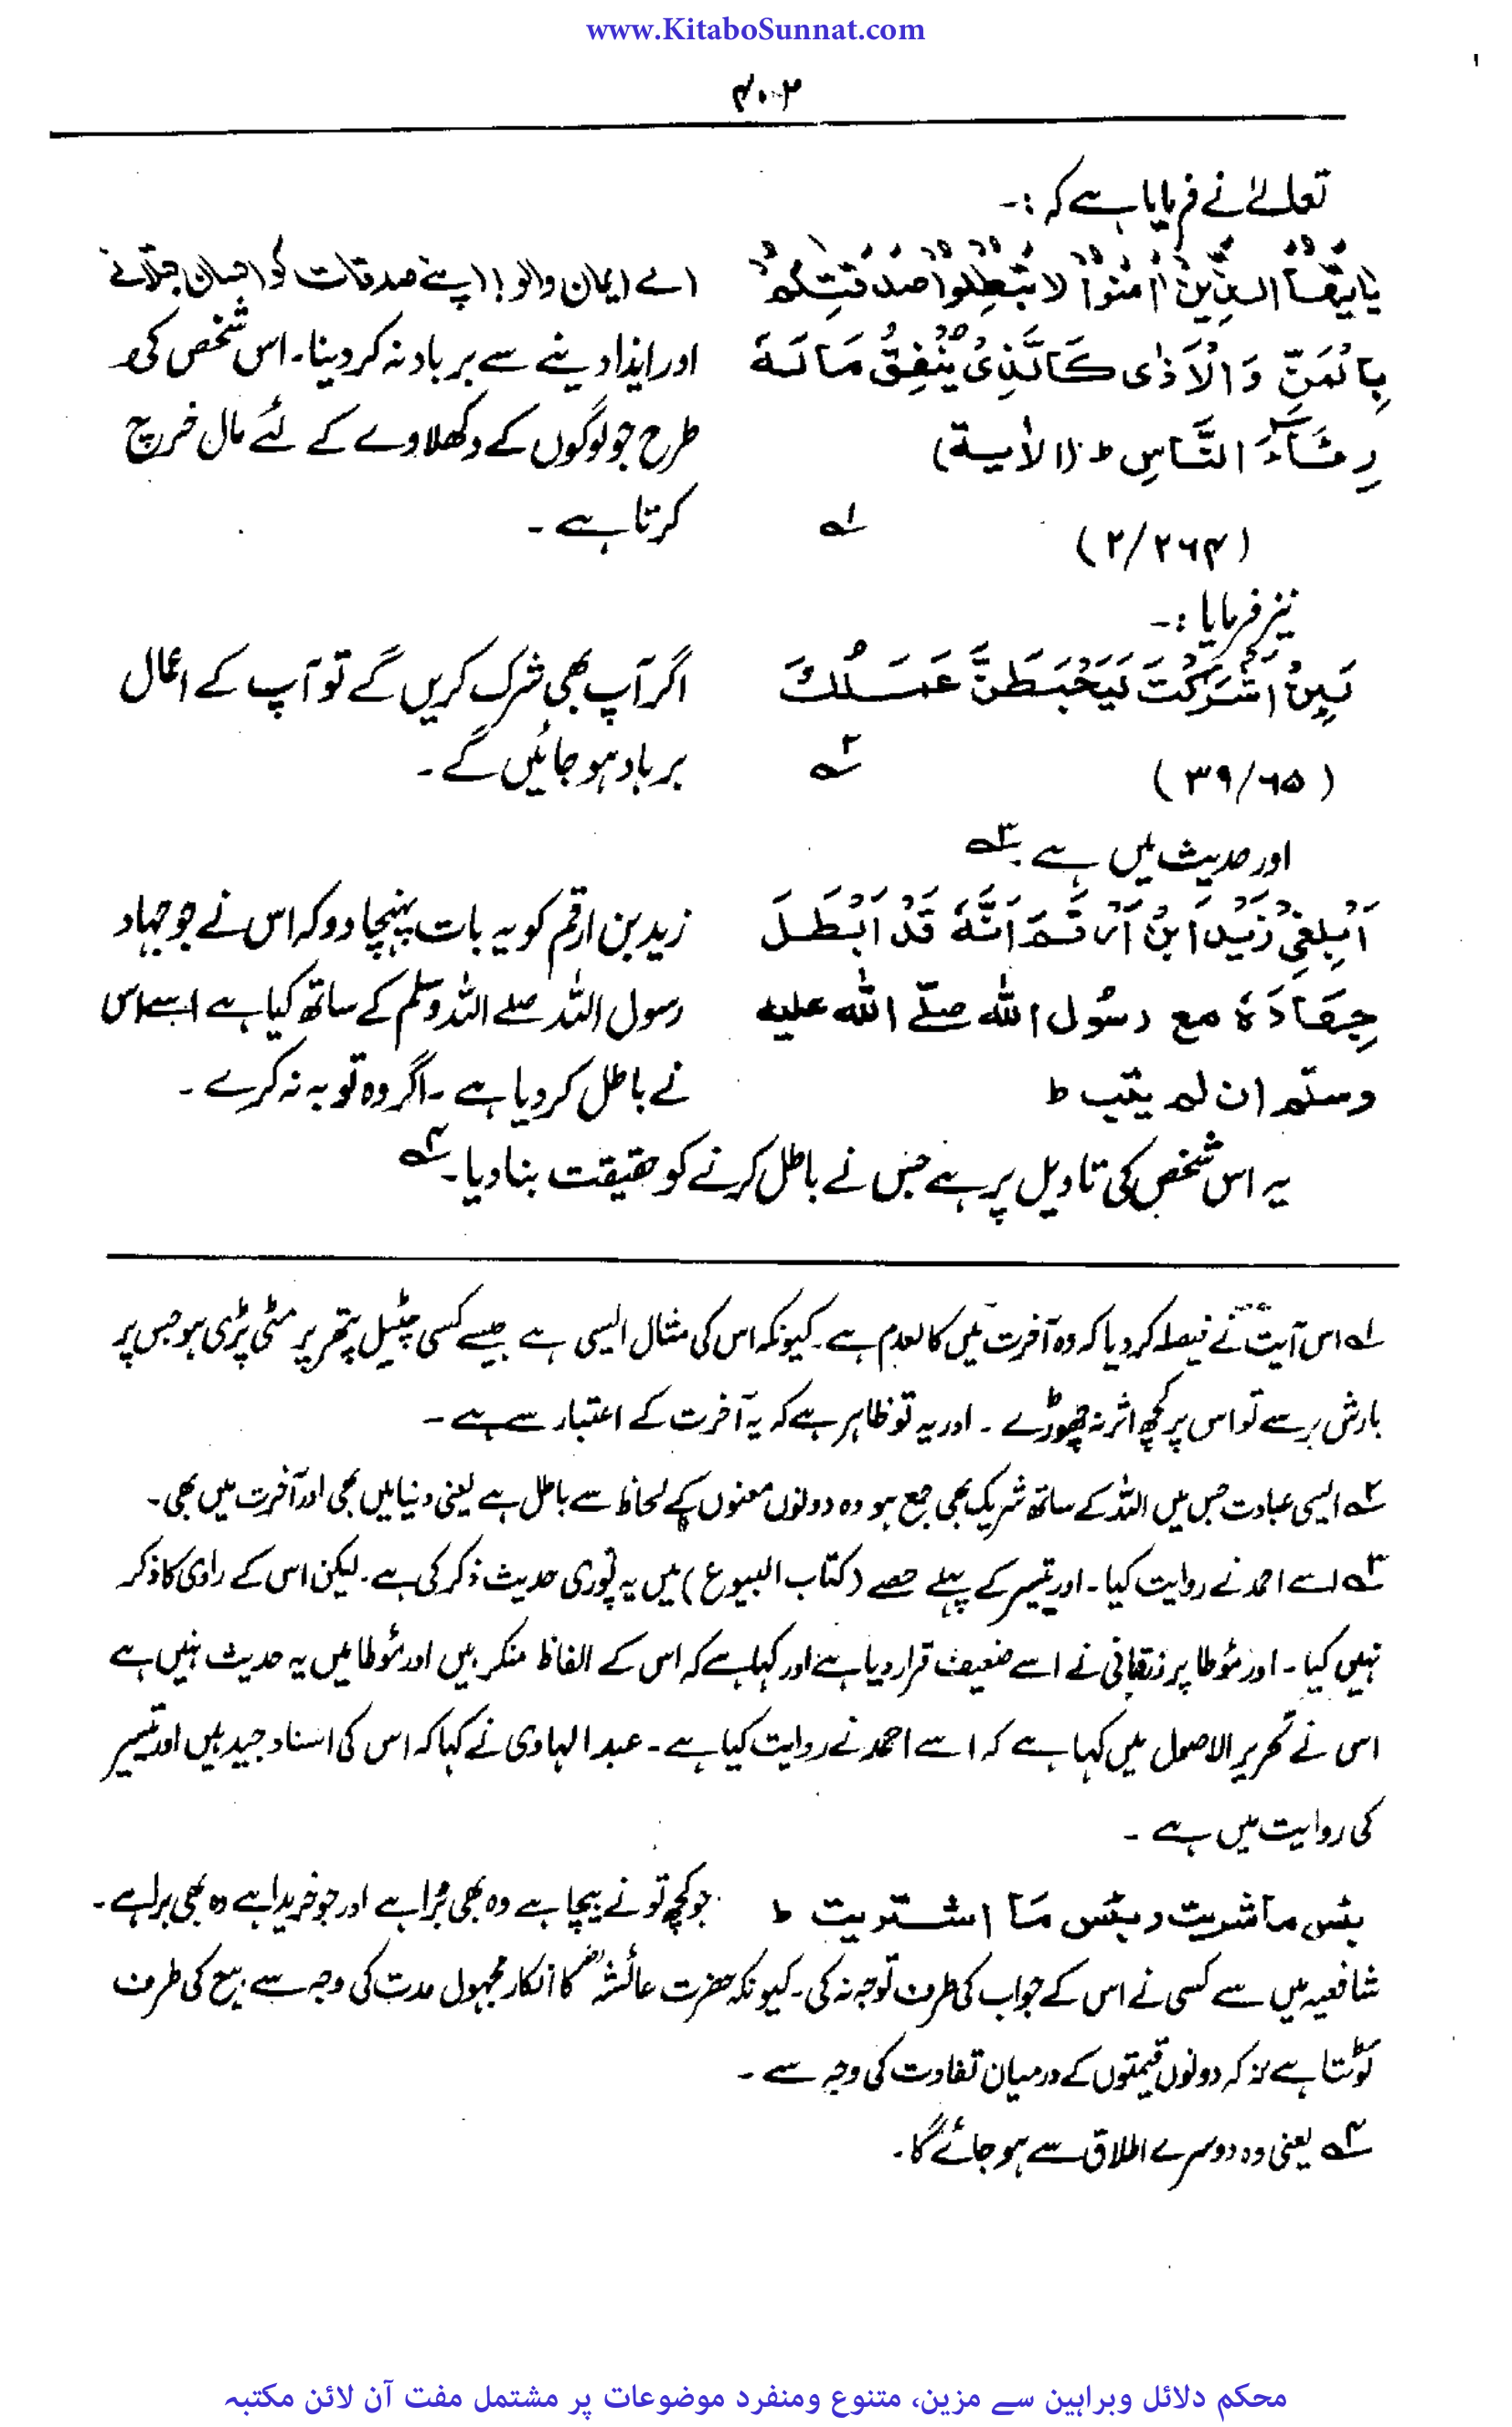 www.KitaboSunnat.com
۴۰۲
تعالےٰ نے فرمایا ہے کہ :-
يٰاَيُّهَا الَّذِيْنَ اٰمَنُوْا لَا تُبْطِلُوْا صَدَقٰتِكُمْ
بِالْمَنِّ وَالْاَذٰى كَالَّذِىْ يُنْفِقُ مَالَهٗ
رِئَآءَ النَّاسِ ط (الاٰية)
(۲/۲۶۴) ۱؎
اے ایمان والو! اپنے صدقات کو احسان جتلانے
اور ایذا دینے سے برباد نہ کر دینا۔ اس شخص کی
طرح جو لوگوں کے دکھلاوے کے لئے مال خرچ
کرتا ہے ۔
نیز فرمایا :-
لَئِنْ اَشْرَكْتَ لَيَحْبَطَنَّ عَمَلُكَ
(۳۹/۶۵) ۲؎
اگر آپ بھی شرک کریں گے تو آپ کے اعمال
برباد ہو جائیں گے ۔
اور حدیث میں ہے ۳؎
اَبْلِغِىْ زَيْدَ ابْنَ اَرْقَمَ اَنَّهٗ قَدْ اَبْطَلَ
جِهَادَهٗ مع رسُول الله صلّے الله عليه
وسلّم ان لم يتب ط
زید بن ارقم کو یہ بات پہنچا دو کہ اس نے جو جہاد
رسول اللہ صلے اللہ وسلم کے ساتھ کیا ہے اسے اس
نے باطل کر دیا ہے ۔ اگر وہ توبہ نہ کرے ۔
یہ اس شخص کی تاویل پر ہے جس نے باطل کرنے کو حقیقت بنا دیا۔ ۴؎
۱؎ اس آیت نے فیصلہ کر دیا کہ وہ آخرت میں کالعدم ہے۔ کیونکہ اس کی مثال ایسی ہے جیسے کسی چٹیل پتھر پر مٹی پڑی ہو جس پر
بارش برسے تو اس پر کچھ اثر نہ چھوڑے ۔ اور یہ تو ظاہر ہے کہ یہ آخرت کے اعتبار سے ہے ۔
۲؎ ایسی عبادت جس میں اللہ کے ساتھ شریک بھی جمع ہو وہ دونوں معنوں کے لحاظ سے باطل ہے یعنی دنیا میں بھی اور آخرت میں بھی۔
۳؎ اسے احمد نے روایت کیا۔ اور تیسیر کے پہلے حصے (کتاب البیوع) میں یہ پوری حدیث ذکر کی ہے۔ لیکن اس کے راوی کا ذکر
نہیں کیا۔ اور مؤطا پر زرقانی نے اسے ضعیف قرار دیا ہے اور کہا ہے کہ اس کے الفاظ منکر ہیں اور مؤطا میں یہ حدیث نہیں ہے
اس نے تحریر الاصول میں کہا ہے کہ اسے احمد نے روایت کیا ہے ۔ عبد الہادی نے کہا کہ اس کی اسناد جید ہیں اور تیسیر
کی روایت میں ہے ۔
بئس ما شريت وبئس مَا اشتريت ط جو کچھ تو نے بیچا ہے وہ بھی بُرا ہے اور جو خریدا ہے وہ بھی برا ہے ۔
شافعیہ میں سے کسی نے اس کے جواب کی طرف توجہ نہ کی۔ کیونکہ حضرت عائشہؓ کا انکار مجہول مدت کی وجہ سے بیع کی طرف
لوٹتا ہے نہ کہ دونوں قیمتوں کے درمیان تفاوت کی وجہ سے ۔
۴؎ یعنی وہ دوسرے اطلاق سے ہو جائے گا۔
محکم دلائل وبراہین سے مزین، متنوع ومنفرد موضوعات پر مشتمل مفت آن لائن مکتبہ